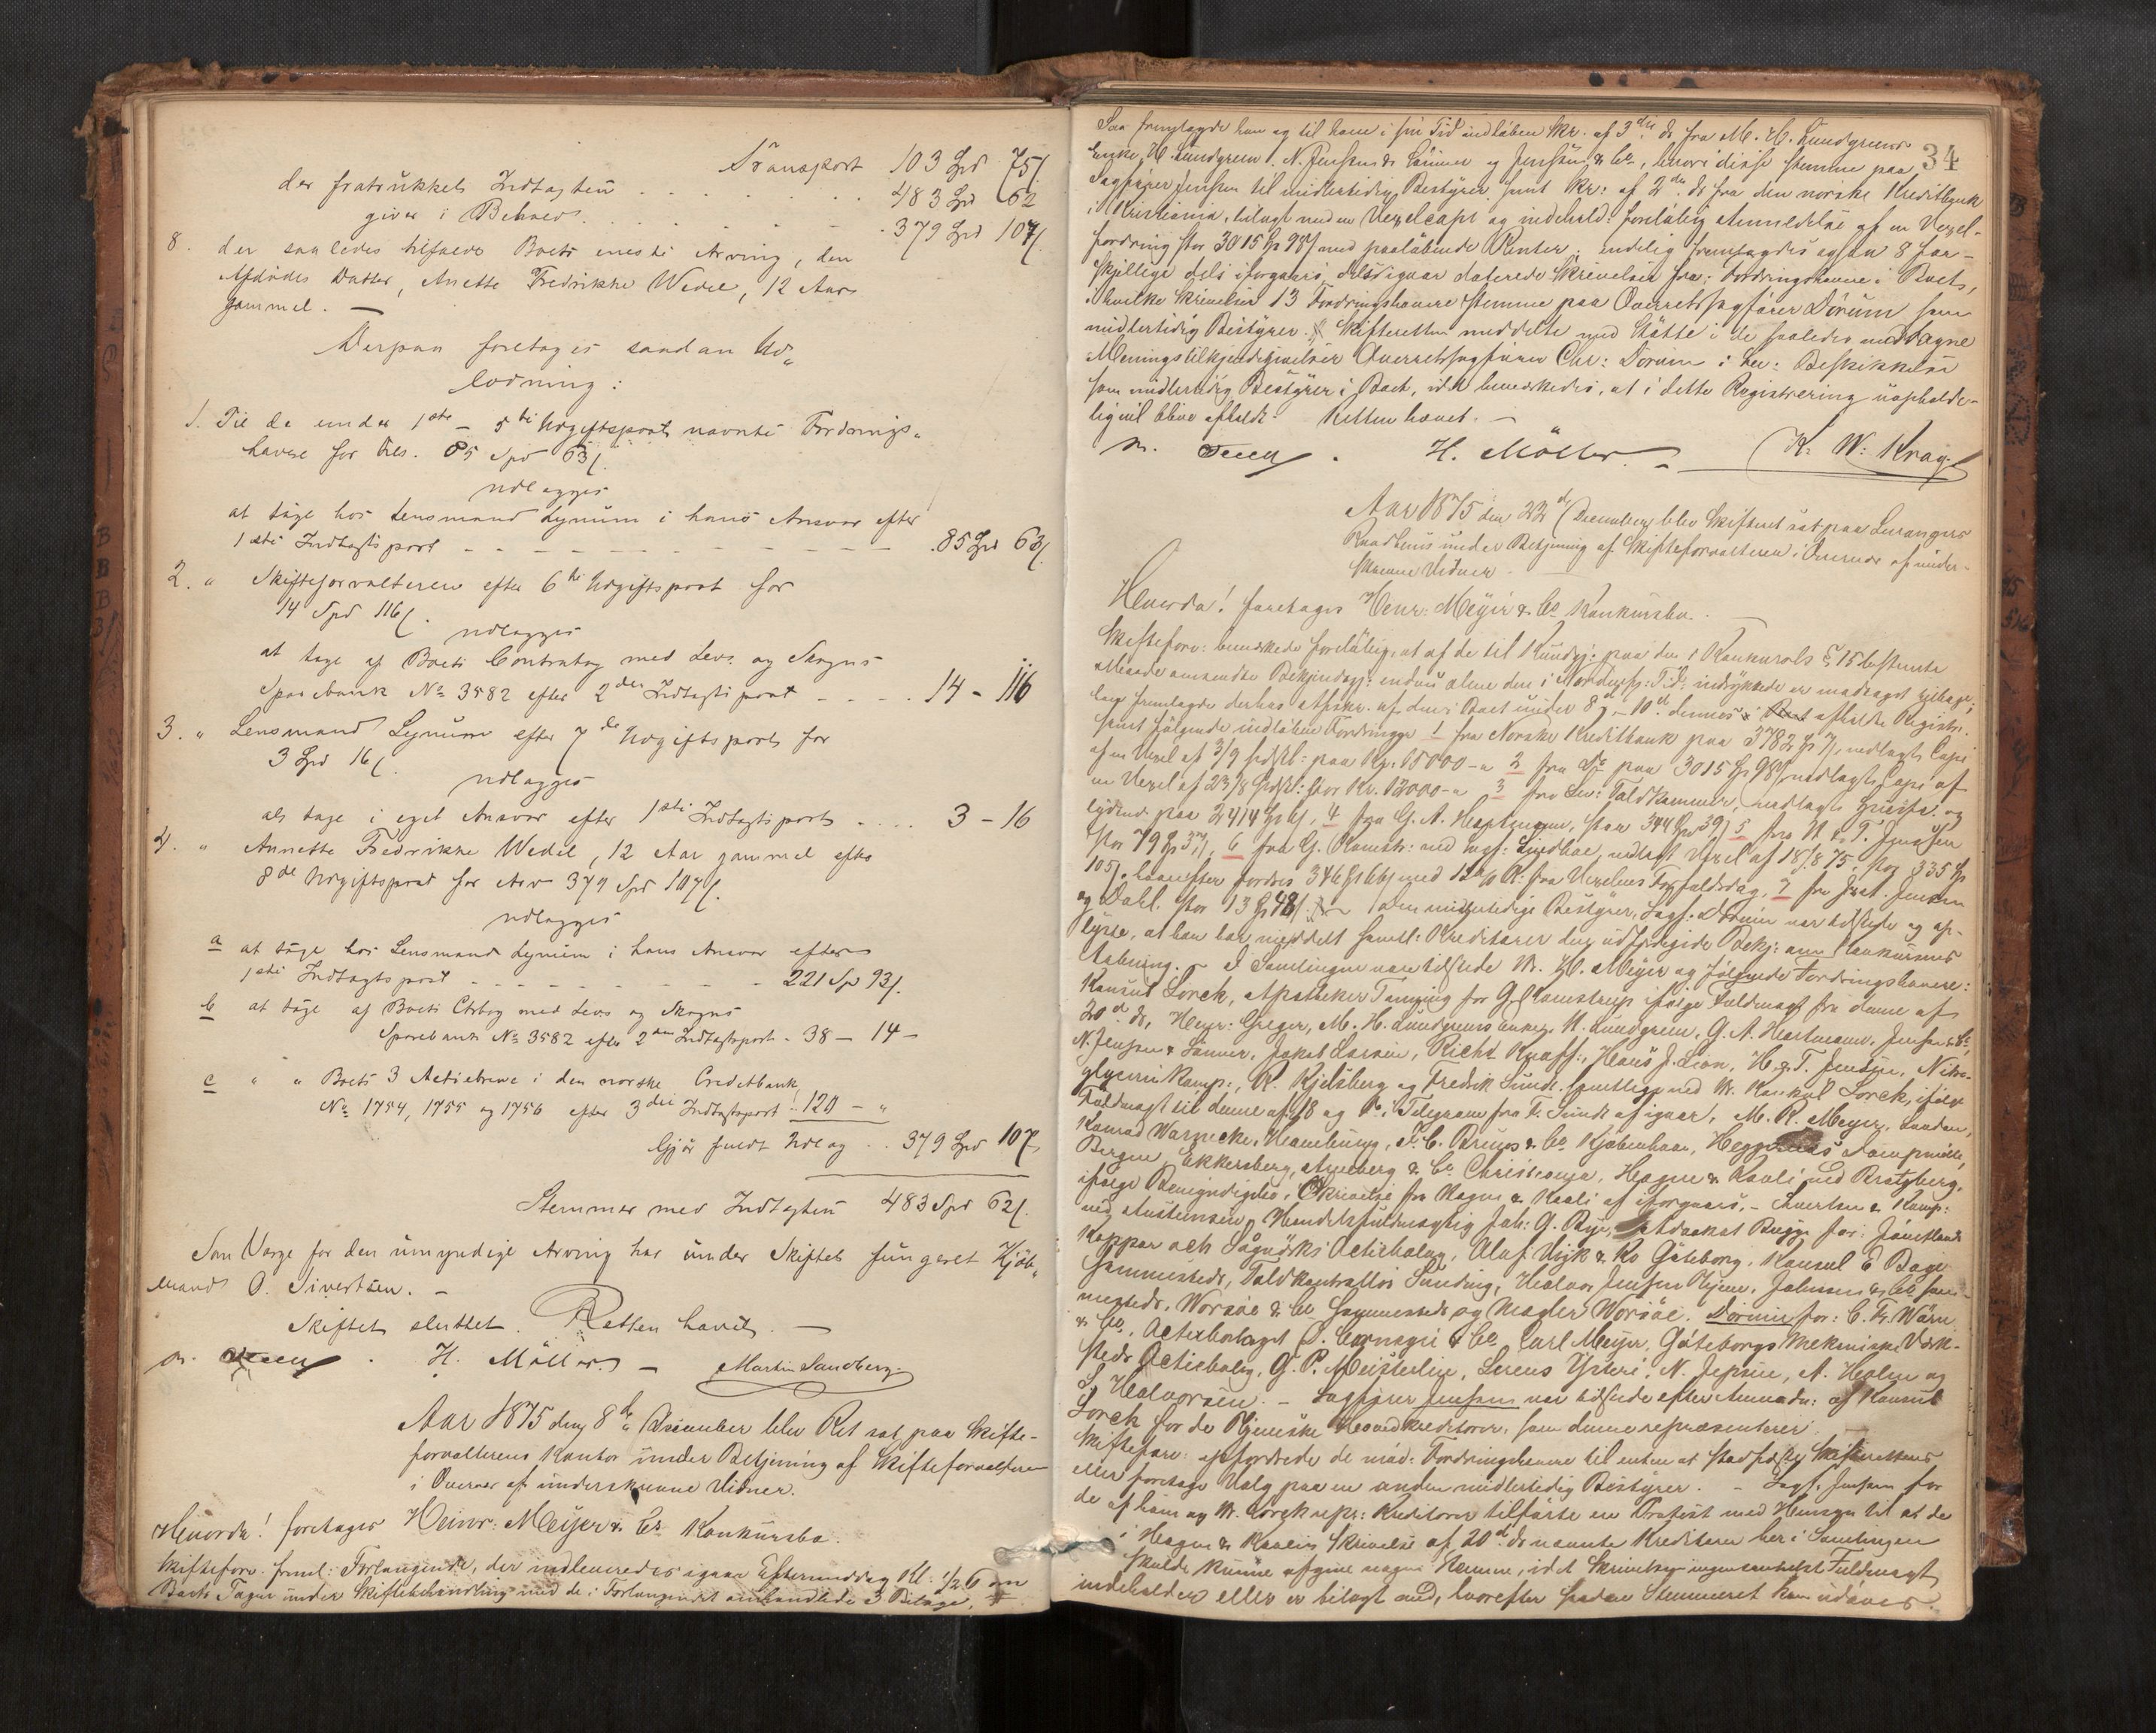 Transport 103 Spd 75 ſ
der fratrukket Indtægten . . . . . . . . 483 Spd 62
giver i Behold . . . . . . . . 379 Spd 107 ſ.
8. der saaledes tilfalder Boets eneste Arving, den
Afdødes Datter, Anette Fredrikke Wedel, 12 Aar
gammel. —
Derpaa foretages saadan Ud„
lodning:
1. Til de under 1ste – 5te Udgiftspost nævnte Fordrings„
havere for tils. 85 Spd 63 ſ.
udlægges
at tage hos Lensmand Lynum i hans Ansvar efter
1ste Indtægtspost – – – – – – – – – – – . 85 Spd 63 ſ.
2. „ Skifteforvalteren efter 6te Udgiftspost for
14 Spd 116 ſ.
udlægges
at tage af Boets Contrabog med Levs. og Skogns
Sparebank No 3582 efter 2den Indtægtspost – . . . 14 – 116
3. „ Lensmand Lynum efter 7de Udgiftspost for
3 Spd 16 ſ.
udlægges
at tage i eget Ansvar efter 1ste Indtægtspost . . . . 3 – 16
4. „ Annette Fredrikke Wedel, 12 Aar gammel efter
8de Udgiftspost for Arv 379 Spd 107 ſ.
udlægges
a at tage hos Lensmand Lynum i hans Ansvar efter
1ste Indtægtspost – – – – – – – – – 221 Sp 93 ſ.
b at tage af Boets Ctrbog med Levs og Skogns
Sparebank No 3582 efter 2den Indtægtspost - 38 – 14 –
c „ „ Boets 3 Actiebreve i den norske Creditbank
No 1754, 1755 og 1756 efter 3die Indtægtspost .. 120 – „
Gjør fuldt Udlæg . . 379 Spd 107
Stemmer med Indtægten 483 Spd 62 ſ.
Som Værge for den umyndige Arving har under Skiftet fungeret Kjøb„
mand O. Sivertsen. –
Skiftet sluttet. Retten hævet. —
H. Möller. – Martin Sandberg.
Aar 1875 den 8de December blev Ret sat paa Skifte-
forvalterens Kontor under Betjening af Skifteforvalteren
i Overvær af underskrevne Vidner.
Hvorda! foretages Heinr: Meyer & Co Konkursbo.
Skifteforv. freml: Forlangende, der indleveredes igaar Eftermiddag Kl: ½6 om
Boets Tagen under Skiftebehandling med de i Forlangendet omhandlede 3 Bilage,
34
Saa fremlagde han og til ham i sin Tid indløben Skr. af 3die ds fra M. H. Lundgreens
Enke, H. Lundgreen, N. Jenssen & Sønner og Jenssen & Co, hvori disse stemme paa
Sagfører Jenssen til midlertidig Bestyrer samt Skr: af 2den ds fra den norske Kreditbank
i Kristiania, bilagt med en Vexelcopi og indehold: foreløbig Anmeldelse af en Vexel-
fordring stor 3015 Sp 98 ſ med paaløbende Renter; endelig fremlagdes ogsaa 8 for-
skjellige dels iforgaars, dels igaar daterede Skrivelser fra Fordringshavere i Boet,
i hvilke Skrivelser 13 Fordringshavere stemme paa Overretssagfører Dorum som
midlertidig Bestyrer. Skifteretten meddelte med Støtte i de saaledes modtagne
Meningstilkjendegivelser Overretssagfører Chr: Dorum i Lev: Beskikkelse
som midlertidig Bestyrer i Boet, idet bemærkedes, at i dette Registrering uopholde-
lig vil blive afholdt. Retten hævet. –
H. Möller. – K. W: Krag.
Aar 1875 den 22de December blev Skifteret sat paa Levangers
Raadhus under Betjening af Skifteforvalteren i Overvær af under-
skrevne Vidner.
Hvorda! foretages Henr: Meyer & Co Konkursbo.
Skifteforv: bemærkede foreløbig, at af de til Kundgj: paa den i Konkursls § 15 bestemte
Maade omsendte Bekjendtgj: endnu alene den i Nordenfj: Tid: indrykkede er modtaget tilbage;
han fremlagde derhos Afskr. af den i Boet under 8de – 10de dennes afholdte Registr.
samt følgende indløbne Fordringer 1 fra Norske Kreditbank paa 3782 Sp 7 ſ, vedlagt Copi
af en Vexel af 3/9 sidstl: paa Kr. 15000 – „ 2 fra Do paa 3015 Sp 98 ſ vedlagt Copi af
en Vexel af 23/8 sidstl: stor Kr. 12000 – „ 3 fra Lev: Toldkammer,
lydende paa 2414 Sp 6 ſ, 4 fra G. A. Hartmann, stor 344 Sp 39 ſ 5 fra H. & T. Jenssen
stor 79 Sp 37 ſ, 6 fra G. Kamstr: ved sagf: Lindboe, vedlagt Vexel af 18/8 75, stor 335 Sp
105 ſ, hvorefter fordres 346 Sp 66 ſ med Rt: fra Vexelens Forfaldsdag, 7 fra Jenssen
og Dahl. stor 13 Sp 48 ſ. Den midlertidige Bestyrer, Sagf. Dorum var tilstede og op-
lyste, at han har meddelt samtl: Kreditorer den udfærdigede Bekj: om Konkursens
Aabning. – I Samlingen vare tilstede Hr. H. Meyer og følgende Fordringshavere:
Konsul Lorck, Apotheker Tanning for G. Kamstrup ifølge Fuldmagt fra denne af
20de ds, Henr: Greger, M. H. Lundgreens Enke, H. Lundgreen, G. A. Hartmann, Jenssen & Co,
N. Jenssen & Sønner, Jakob Larsen, Richd Knoff, Hans J. Lian, H. & T. Jenssen, Nitro-
glycerinkomp:, R. Kjelsberg og Fredrik Sundt, samtlige ved Hr. Konsul Lorck, ifølge
Fuldmagt til denne af 18 og Telegram fra Fr: Sundt af igaar, M. R. Meyer, London,
Konrad Warnecke, Hamburg, F. C. Bruuns & Co Kjøbenhavn, Dampmølle,
Bergen, Ekkersberg, & Co Christiania, Hagen & Kaali ved Bratzberg,
ifølge Bemyndigelse, i Skrivelse fra Hagen & Kaali af iforgaars, – Svertsen & Komp:
ved Austensen, Handelsfuldmægtig Joh: G. Bye, Advokat Bugge for: Jämtlands
Koppar och Sågverks Actiebolag, Oluf Wijk & Ko Göteborg, Konsul E Bage
sammesteds, Toldkontrollør Sunding, Halvor Jenssen Hjem, Johnsen & Co sam-
mesteds, Worsøe & Co sammesteds og Mægler Worsøe. Dorum for: C. Fr Wærn
& Co, Actiebolaget D. Carnegie & Co, Carl Meyer, Göteborgs Mekaniske Værk-
steds Actiebolag, G. P. Meisterlin, Lerens Yskeri, N. Jepsen, A. Holm og
L. Halvorsen. – Sagfører Jenssen var tilstede efter Anmodn: af Konsul
Lorck for de Thjemske Hovedkreditorer, som denne repræsenterer. –
Skifteforv: opfordrede de mød: Fordringshavere til enten at stadfæste Skifterettens
eller foretage Valg paa en anden midlertidig Bestyrer. – Sagf. Jenssen for
de af ham og Hr. Lorck repr: Kreditorer tilførte en Protest med Hensyn til at de
i Hagen & Kaalis Skrivelse af 20de ds nævnte Kreditorer her i Samlingen
skulde kunne afgive nogen Stemme, idet Skrivelsen ingensomhelst Fuldmagt
indeholder eller er bilagt med, hvorefter saadan Stemmeret kan udøves.